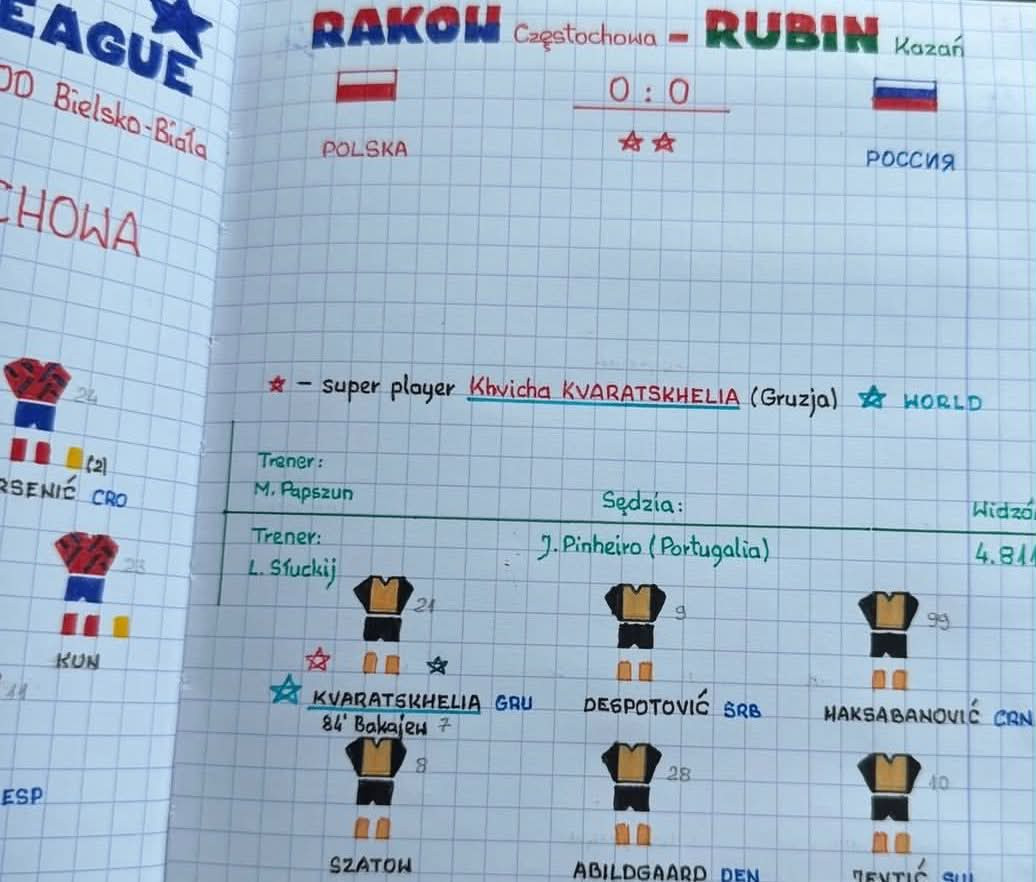 EAGUE
OD Bielsko-Biała
CHOWA
24
(2)
RSENIĆ CRO
23
KUN
ESP
RAKOW Częstochowa - RUBIN Kazań
0:0
POLSKA
РОССИЯ
- super player Khvicha KVARATSKHELIA (Gruzja) WORLD
Trener:
M. Papszun
Sędzia:
Widzó
Trener:
L. Słuckij
J. Pinheiro (Portugalia)
4.811
21
9
99
KVARATSKHELIA GRU
DESPOTOVIĆ SRB
MAKSABANOVIĆ CRN
84' Bakajew 7
8
28
10
SZATOW
ABILDGAARD DEN
JEVTIĆ SUI